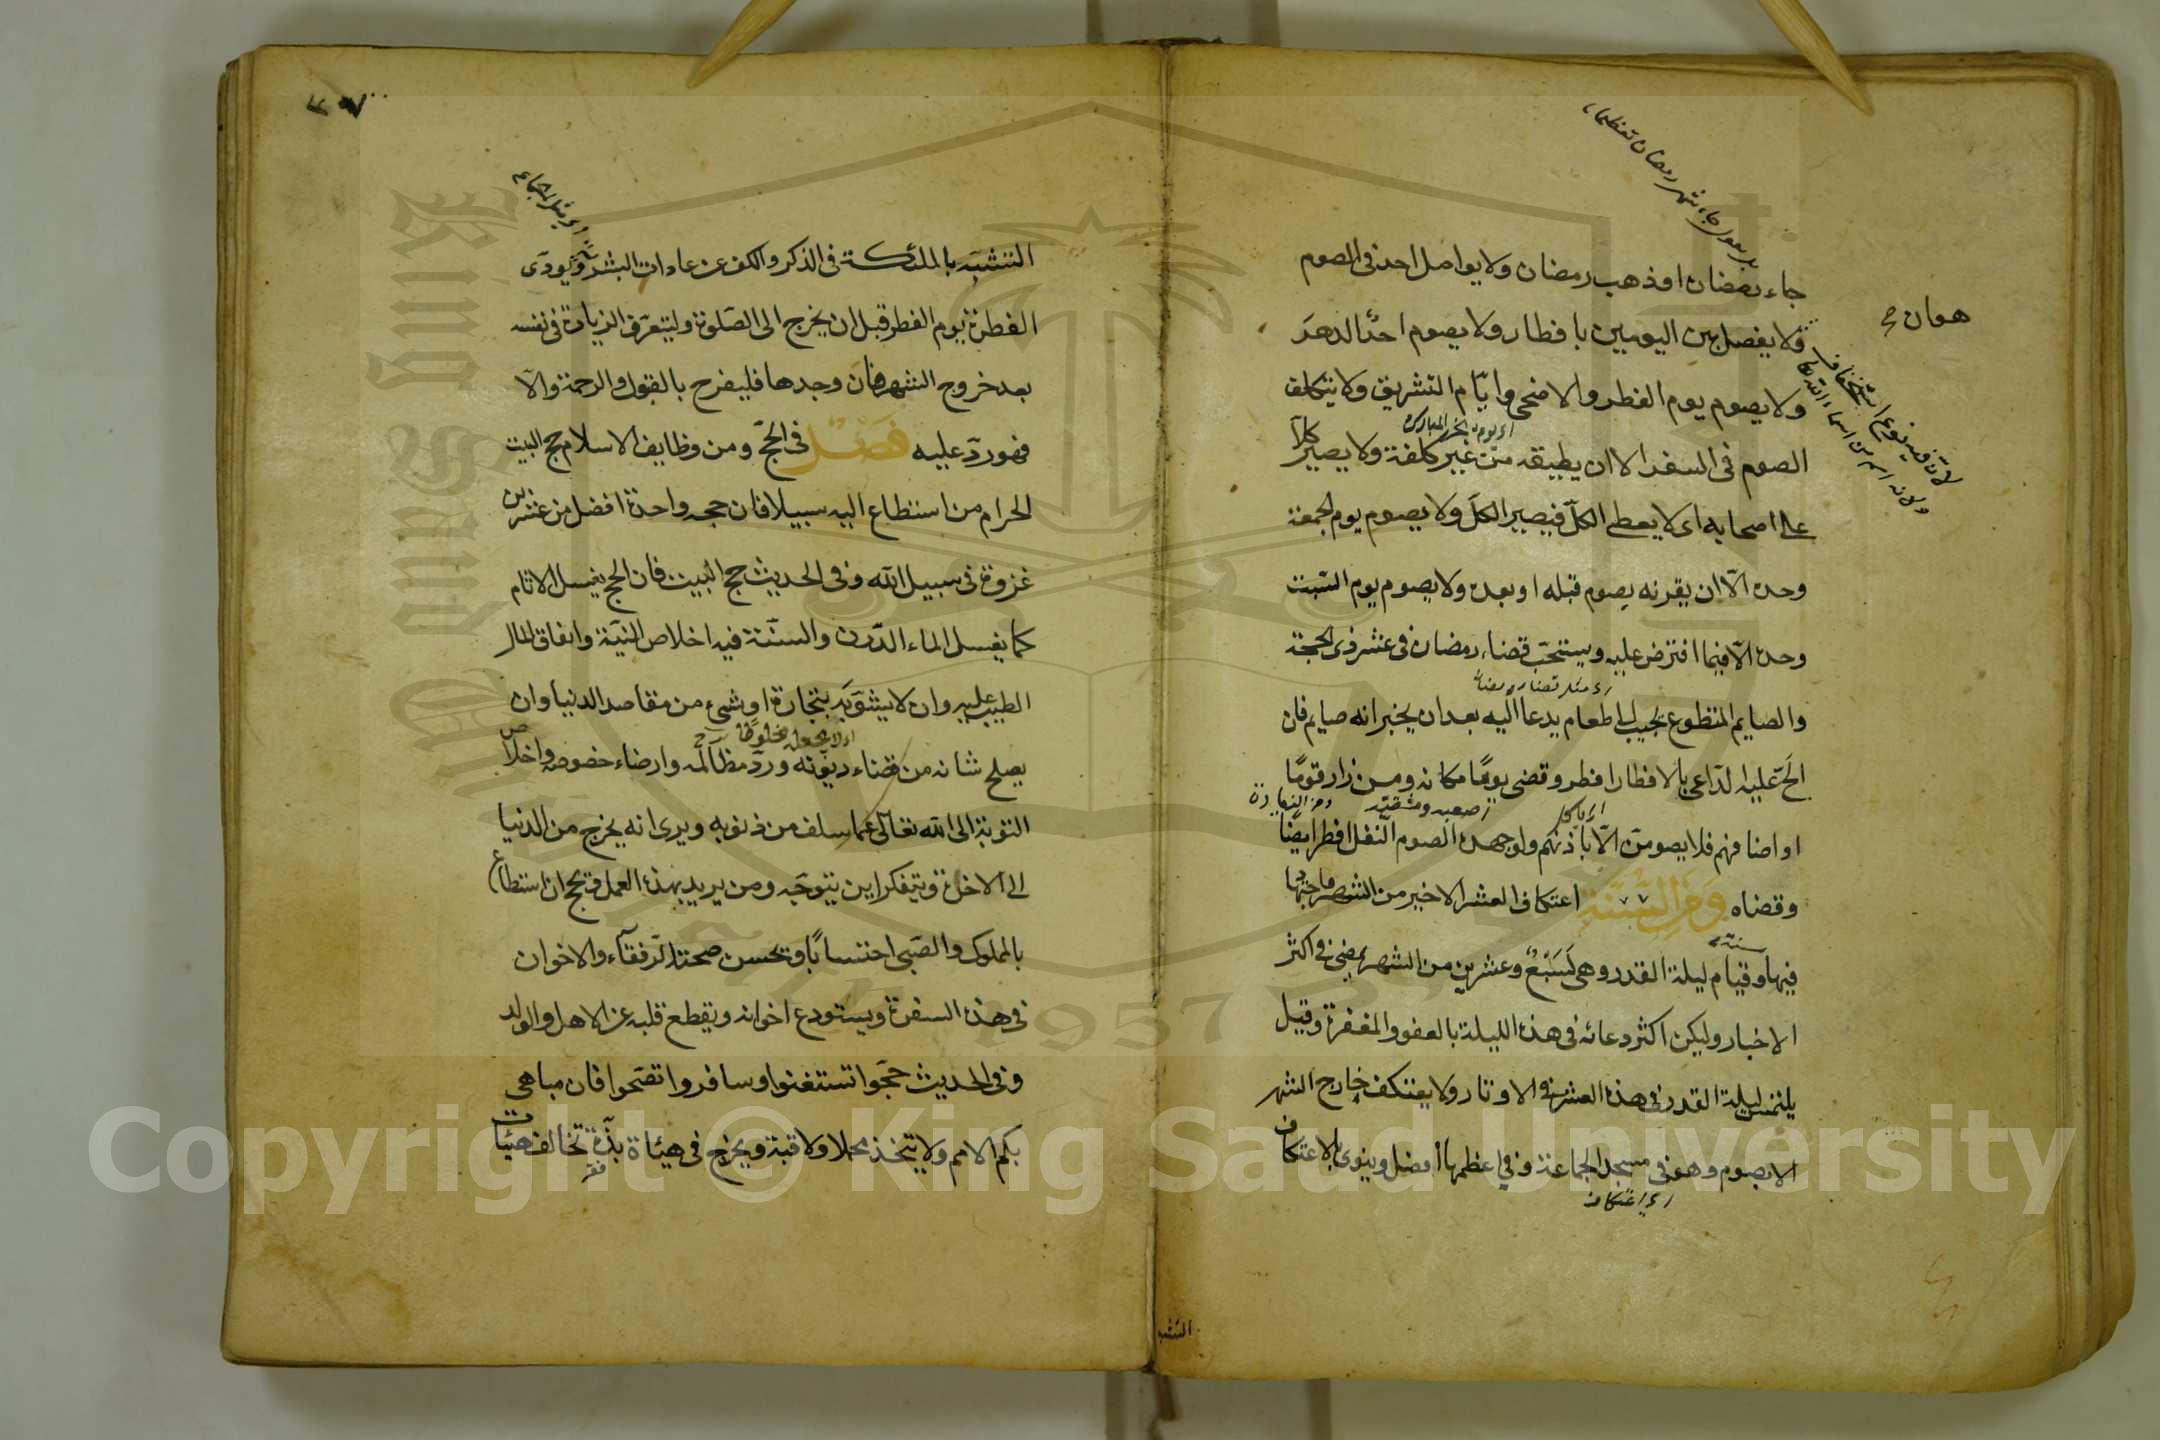 بل يقول جاء شهر رمضان تعظيما
هوان صح
جاء رمضان او ذهب رمضان ولا يواصل احد فى الصوم
فلا يفصل بين اليومين بافطار ولا يصوم احد الدهر
ولا يصوم يوم الفطر والاضحى وايّام التشريق ولا يتكلف
لان فيه نوع استخفاف
ولانه اسم من اسماء الله تعالى
الصوم فى السفر الا ان يطيقه من غير كلفة ولا يصير كلّا
على اصحابه اى لا يعطى الكلّ فيصير الكلّ ولا يصوم يوم الجمعة
وحده الّا ان يقرنه بصوم قبله او بعده ولا يصوم يوم السّبت
وحده الّا فيما افترض عليه ويستحبّ قضاء رمضان فى عشر ذى الحجة
اى مثل قضاء رمضان
والصايم المتطوع يجيب الى طعام يدعا اليه بعد ان يخبر انه صايم فان
الحّ عليه الدّاعى بالافطار افطر وقضى يومًا مكانه ومن زار قومًا
او اضافهم فلا يصومنّ الّا باذنهم ولو جهده الصوم النّفل افطر ايضًا
وقضاه ومن السّنّة اعتكاف العشر الاخير من الشهر
فيها وقيام ليلة القدر وهى لسبع وعشرين من الشهر يمضى فى اكثر
الاخبار وليكن اكثر دعائه فى هذه الليلة بالعفو والمغفرة وقيل
يلتمس ليلة القدر فى هذه العشر فى الاوتار ولا يعتكف خارج الشهر
الا بصوم وهو فى مسجد الجماعة وفى اعظمها افضل وينوى بالاعتكاف
اى اعتكاف
التشبه
التشبّه بالملئكة فى الذكر والكف عن عادات البشر ويودّى
الفطرة يوم الفطر قبل ان يخرج الى الصّلوة وليتعرّف الزيادة فى نفسه
بعد خروج الشهر فان وجدها فليفرح بالقبول والرحمة والّا
فهو ردّ عليه فصل فى الحجّ ومن وظايف الاسلام حج البيت
الحرام من استطاع اليه سبيلا فان حجه واحدة افضل من عشرين
غزوة فى سبيل الله وفى الحديث حج البيت فان الحج يغسل الاثام
كما يغسل الماء الدّرن والسنّة فيه اخلاص النيّة وانفاق المال
الطيب عليه وان لا يشوّبه بتجارة او شىء من مقاصد الدنيا وان
اى لا يجعله مخلوطا
يصلح شانه من قضاء ديونه وردّ مظالمه وارضاء خصومه واخلاص
التوبة الى الله تعالى عما سلف من ذنوبه ويرى انه يخرج من الدنيا
الى الاخرة ويتفكر اين يتوجّه ومن يريد بهذا العمل ويحج ان استطاع
بالمملوك والصّبى احتسابًا ويحسن صحبة الرّفقاء والاخوان
فى هذه السفرة ويستودع اخوانه ويقطع قلبه عن الاهل والولد
وفى الحديث حجّوا تستغنوا وسافروا تصحّوا فان مباهى
بكم الامم ولا يتخذ محملا ولا قبة ويخرج فى هيئاة بذّة تخالف هيئات